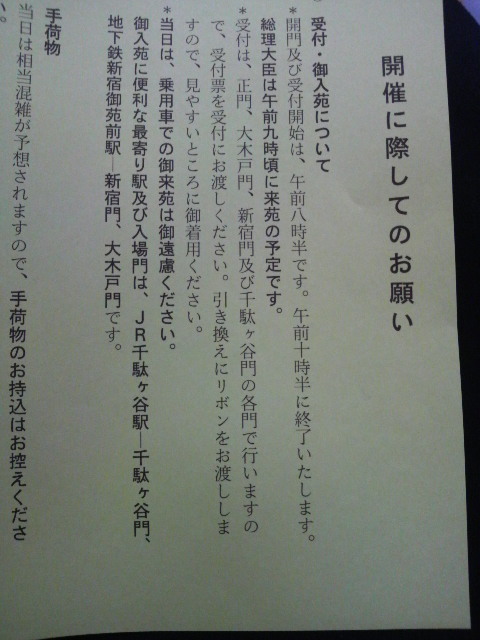 開催に際してのお願い
受付・御入苑について
*開門及び受付開始は、午前八時半です。午前十時半に終了いたします。
総理大臣は午前九時頃に来苑の予定です。
*受付は、正門、大木戸門、新宿門及び千駄ヶ谷門の各門で行いますの
で、受付票を受付にお渡しください。引き換えにリボンをお渡ししま
すので、見やすいところに御着用ください。
*当日は、乗用車での御来苑は御遠慮ください。
御入苑に便利な最寄り駅及び入場門は、JR千駄ヶ谷駅―千駄ヶ谷門、
地下鉄新宿御苑前駅―新宿門、大木戸門です。
手荷物
当日は相当混雑が予想されますので、手荷物のお持込はお控えくださ
い。